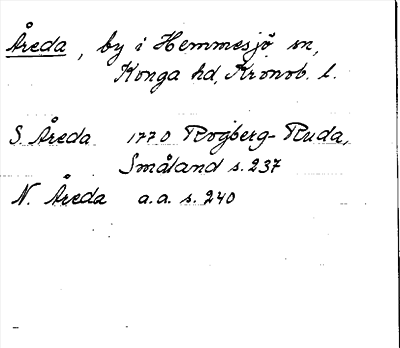 Åreda, by i Hemmesjö sn,
Konga hd, Kronob. l.
S. Åreda 1770 Rogberg-Ruda,
Småland s. 237
N. Åreda a.a. s. 240